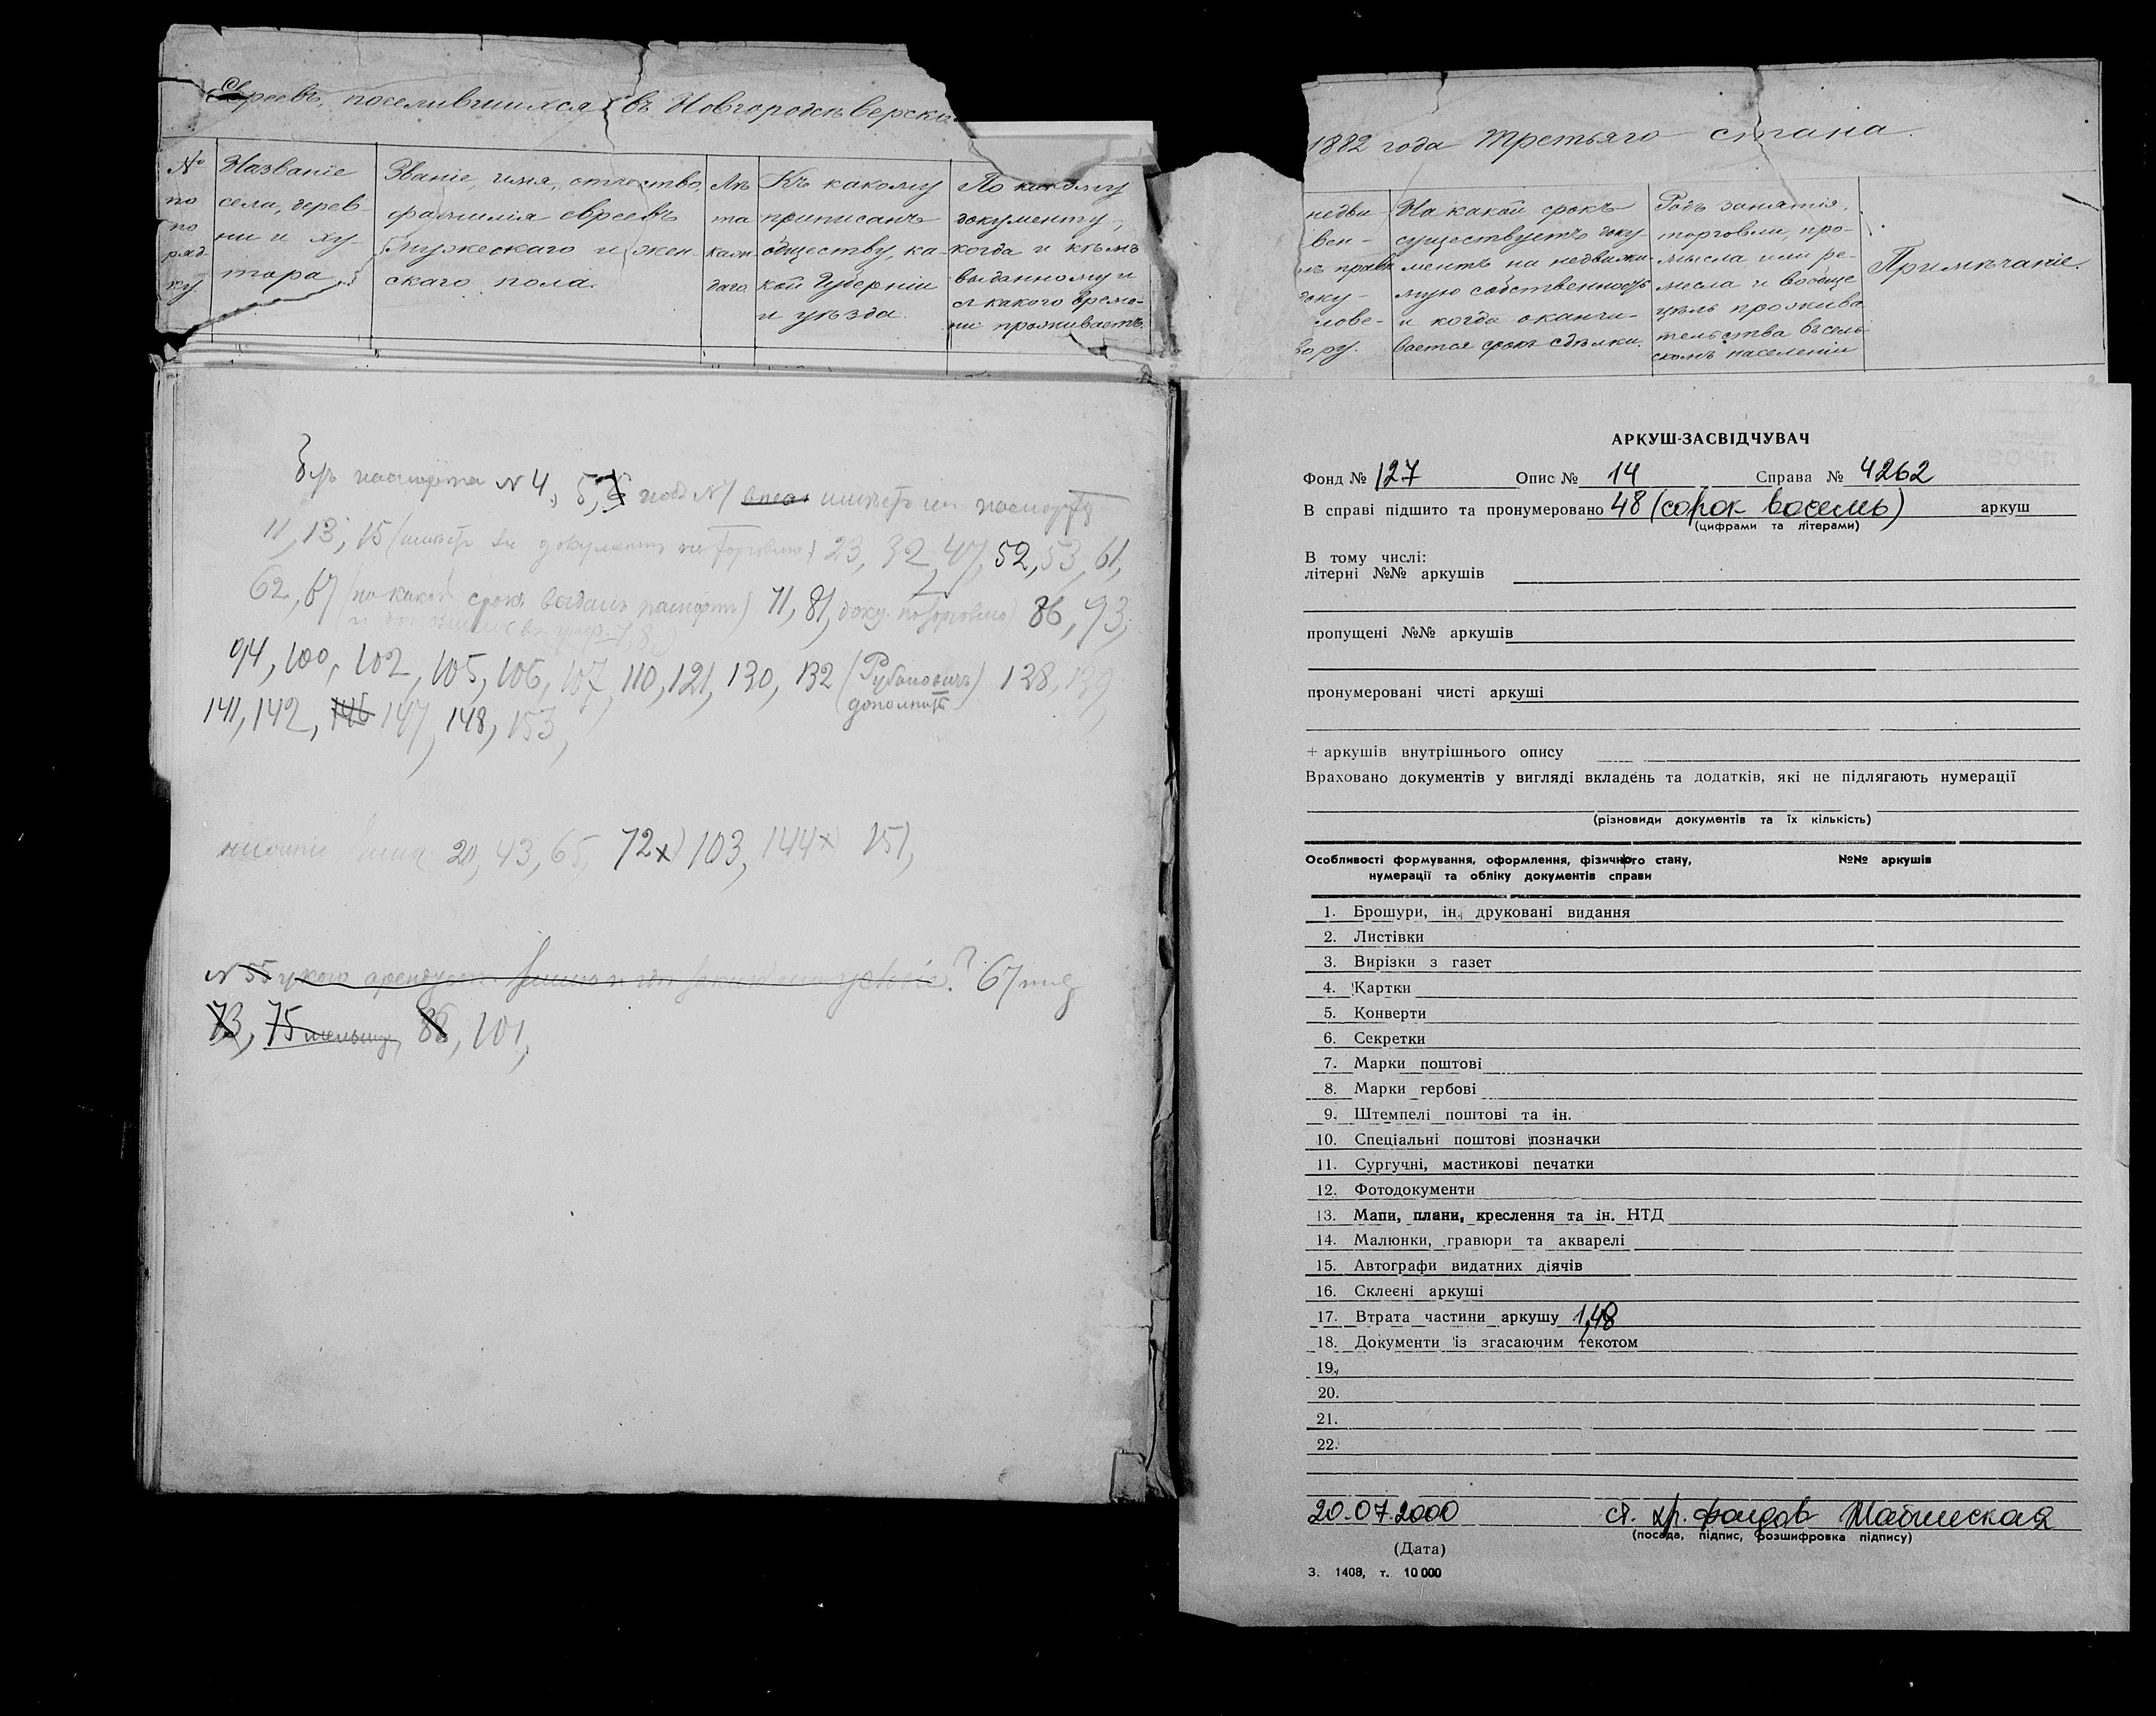 Евреевъ, поселившихся въ Новгородсѣверско
1882 года Третьяго стана.
№ по поряд-ку
Названіе
села, дерев-
ни и ху-
тора
Званіе, имя, отчество,
фамилія евреевъ
мужескаго и жен-
скаго пола.
Лѣ
та
кажд
даго
Къ какому
приписанъ
обществу, ка-
кой Губерніи
и уѣзда.
По какому
документу,
когда и кѣмъ
выданному и
съ какого време-
ни проживаетъ.
недви-
вен-
праву
доку-
лове-
вору.
На какой срокъ
существуетъ доку
ментъ на недвижи-
мую собственность
и когда оканчи-
вается срокъ сдѣлки.
Родъ занятія,
торговли, про-
мысла или ре-
месла и вообще
цѣль прожива
тельства въ сель-
скомъ населеніи
Примѣчаніе.
Безъ паспорта № 4, 5, 6 подъ № 7 имѣетъ ли паспортъ
11, 13, 15 (имѣетъ ли документъ на торговлю) 23, 32, 47, 52, 53, 61,
62, 67 (на какой срокъ выданъ паспортъ) 71, 81, доку. по торговлѣ) 86, 93,
94, 100, 102, 105, 106, 107, 110, 121, 130, 132 (Рубановичъ) 138, 139,
дополнить
141, 142, 146 147, 148, 153,
20, 43, 65, 72х) 103, 144х) 151,
№ 55 у кого арендуетъ ? 67
73, 75 мельницу, 86, 101,
АРКУШ-ЗАСВІДЧУВАЧ
Фонд № 127 Опис № 14 Справа № 4262
В справі підшито та пронумеровано 48 (сорок восемь) аркуш
(цифрами та літерами)
В тому числі:
літерні №№ аркушів
пропущені №№ аркушів
пронумеровані чисті аркуші
+ аркушів внутрішнього опису
Враховано документів у вигляді вкладень та додатків, які не підлягають нумерації
(різновиди документів та їх кількість)
Особливості формування, оформлення, фізичного стану, №№ аркушів
нумерації та обліку документів справи
1. Брошури, ін. друковані видання
2. Листівки
3. Вирізки з газет
4. Картки
5. Конверти
6. Секретки
7. Марки поштові
8. Марки гербові
9. Штемпелі поштові та ін.
10. Спеціальні поштові позначки
11. Сургучні, мастикові печатки
12. Фотодокументи
13. Мапи, плани, креслення та ін. НТД
14. Малюнки, гравюри та акварелі
15. Автографи видатних діячів
16. Склеєні аркуші
17. Втрата частини аркушу 1,48
18. Документи із згасаючим текотом
19.
20.
21.
22.
20.07.2000 ст. хр. фондов
(посада, підпис, розшифровка підпису)
(Дата)
З. 1408, т. 10 000